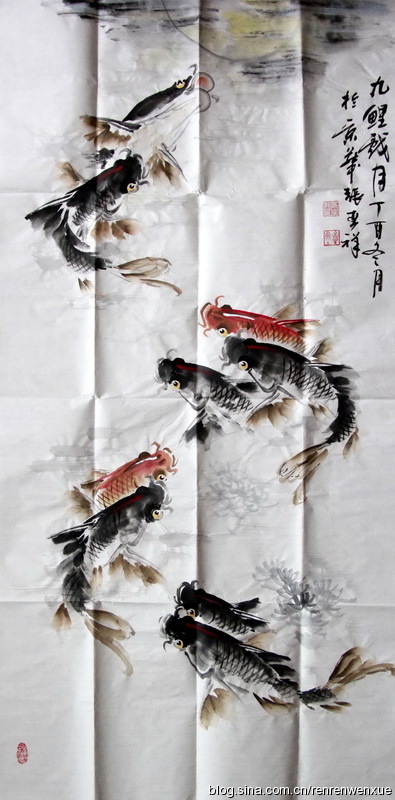 九鲤戏月丁酉冬月
於京華張祥
blog.sina.com.cn/renrenwenxue